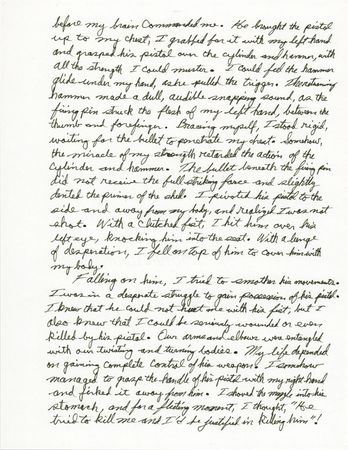 before my brain commanded me. He brought the pistol
up to my chest, I grabbed for it with my left hand
and grasped his pistol over the cylinder and hammer, with
all the strength I could muster. I could feel the hammer
glide under my hand, as he pulled the trigger. The returning
hammer made a dull, audible snapping sound, as the
firing pin struck the flesh of my left hand, between the
thumb and forefinger. Bracing myself, I stood rigid,
waiting for the bullet to penetrate my chest. Somehow,
the miracle of my strength retarded the action of the
cylinder and hammer. The bullet beneath the firing pin
did not receive the full striking force and slightly
dented the primer of the shell. I pivoted his pistol to the
side and away from my body, and realized I was not
shot. With a clutched fist, I hit him over his
left eye, knocking him into the seat. With a lunge
of desperation, I fell on top of him to cover him with
my body.
Falling on him, I tried to smother his movements.
I was in a desperate struggle to gain possession of his pistol.
I knew that he could not hurt me with his fist, but I
also knew that I could be seriously wounded or even
killed by his pistol. Our arms and elbows was entangled
with our twisting and turning bodies. My life depended
on gaining complete control of his weapon. I somehow
managed to grasp the handle of his pistol with my right hand
and jerked it away from him. I shoved the muzzle into his
stomach, and for a fleeting moment, I thought, "He
tried to kill me and I'd be justified in killing him"!